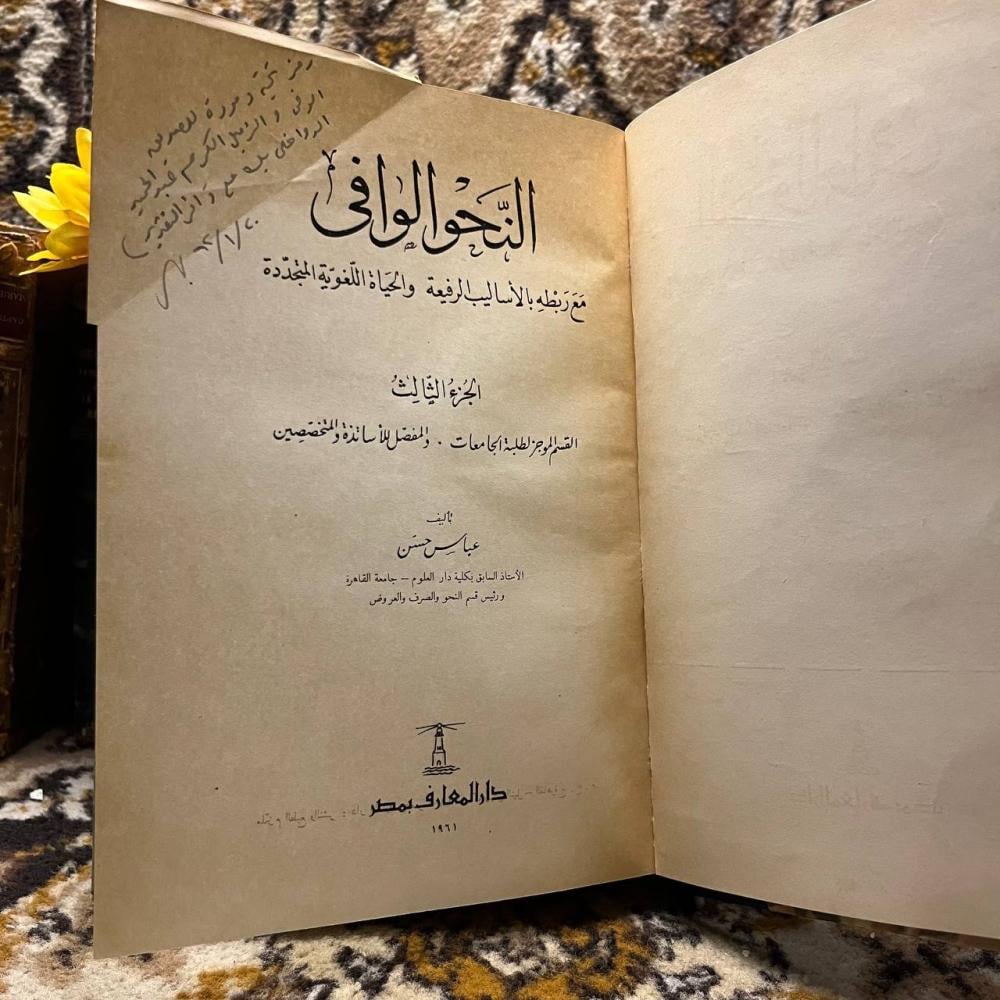 رمز تحية ومودة للصديق
الوفى والزميل الكريم
النَّحْو الوافى
مَعَ رَبْطِهِ بالأساليب الرفيعة والحَيَاة اللّغويّة المتجدّدة
الجُزءُ الثَّالِثُ
القسم الموجز لطلبة الجامعات . والمفصّل للأساتذة والمتخصّصين
تأليف
عباس حسَن
الأستاذ السابق بكلية دار العلوم – جامعة القاهرة
ورئيس قسم النحو والصرف والعروض
دار المعارف بمصر
١٩٦١